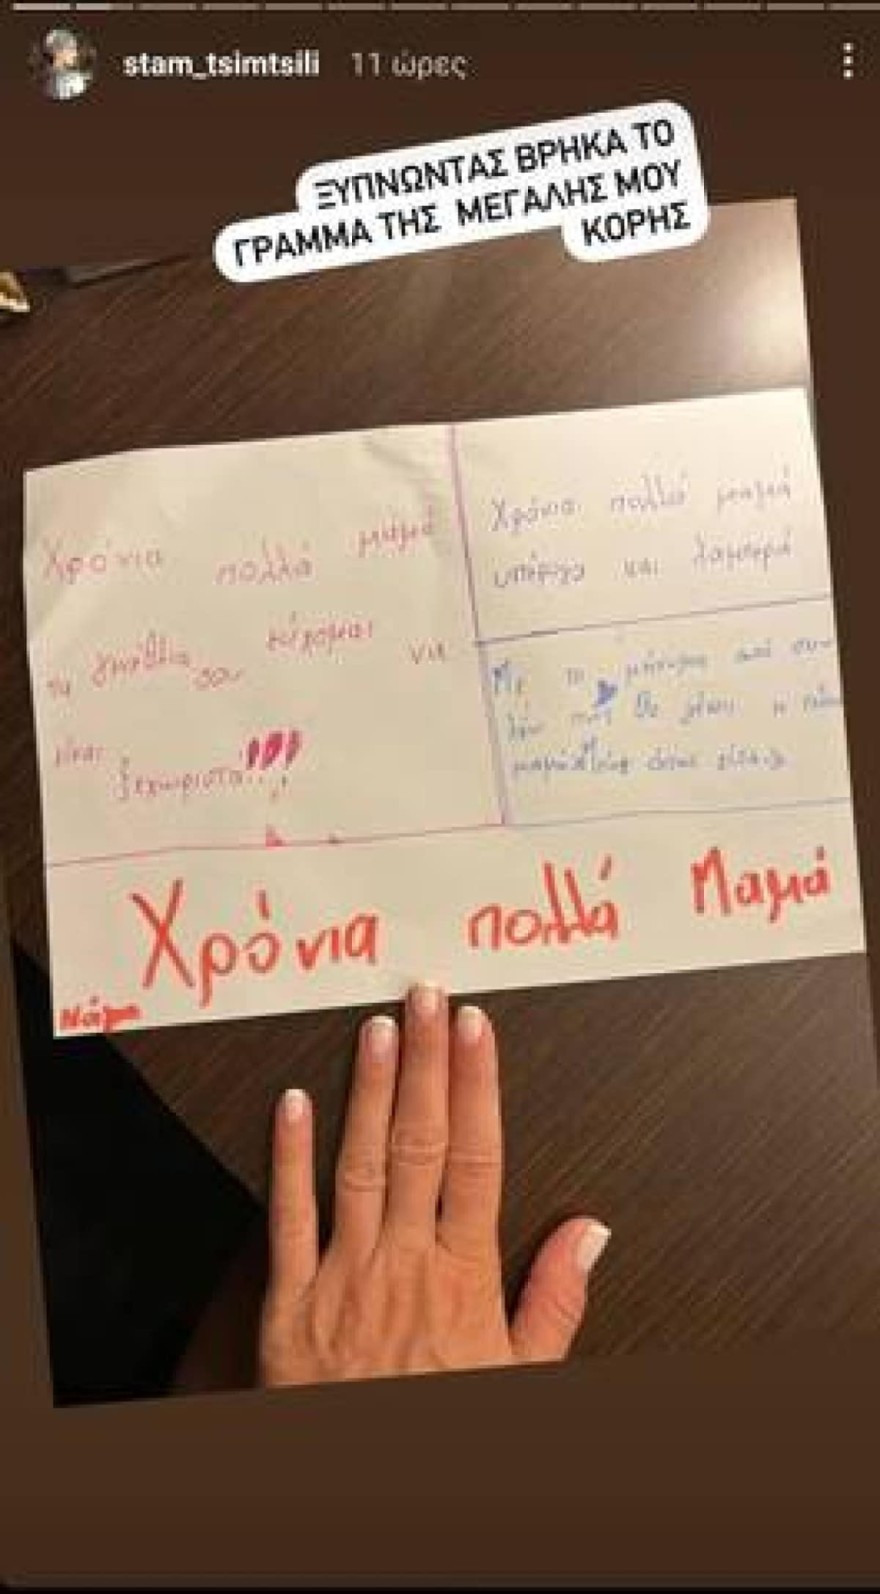 stam_tsimtsili 11 ώρες
ΞΥΠΝΩΝΤΑΣ ΒΡΗΚΑ ΤΟ
ΓΡΑΜΜΑ ΤΗΣ ΜΕΓΑΛΗΣ ΜΟΥ
ΚΟΡΗΣ
Χρόνια πολλά μαμά
τα γενέθλια σου εύχομαι να
είναι
ξεχωριστά!!!
Χρόνια πολλά μαμά
υπέροχα και λαμπερά
Με το μήνυμα από
θα
Χρόνια πολλά Μαμά